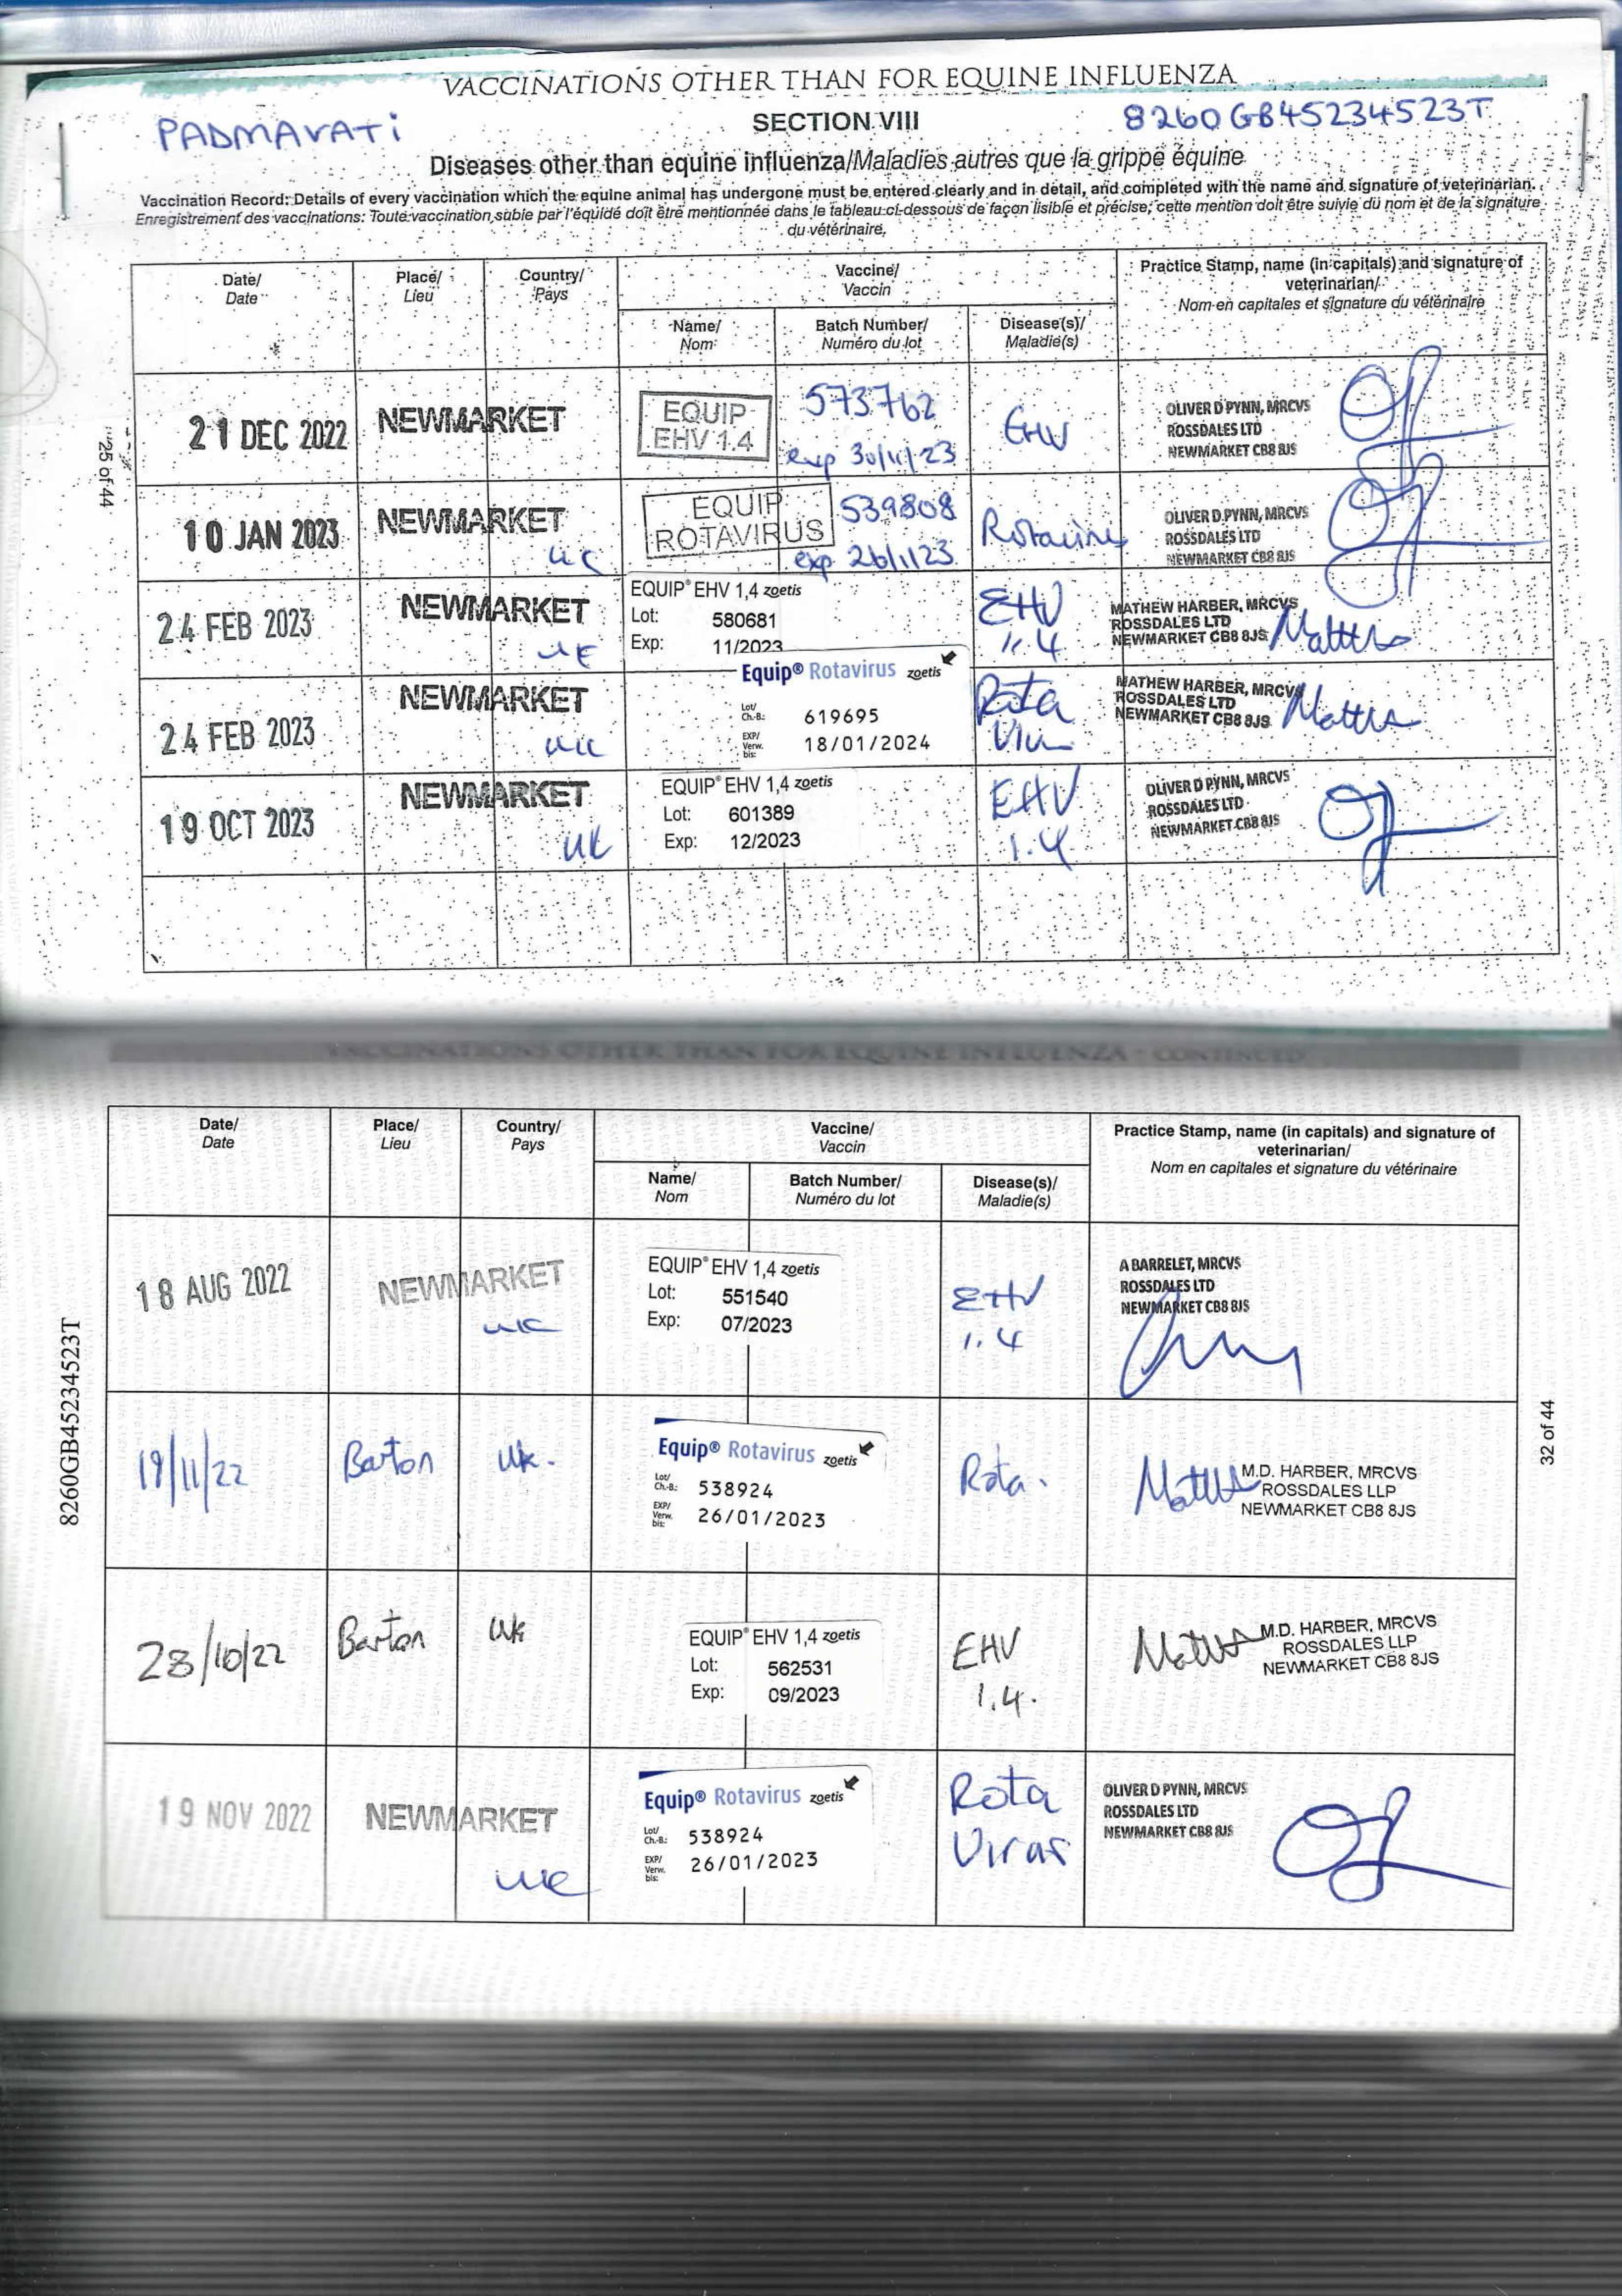 VACCINATIONS OTHER THAN FOR EQUINE INFLUENZA
PADMAVATI
SECTION VIII
8260GB45234523T
Diseases other than equine influenza/Maladies autres que la grippe équine
Vaccination Record: Details of every vaccination which the equine animal has undergone must be entered clearly and in detail, and completed with the name and signature of veterinarian.
Enregistrement des vaccinations: Toute vaccination subie par l'équidé doit être mentionnée dans le tableau ci-dessous de façon lisible et précise; cette mention doit être suivie du nom et de la signature
du vétérinaire.
Date/
Date
Place/
Lieu
Country/
Pays
Vaccine/
Vaccin
Practice Stamp, name (in capitals) and signature of
veterinarian/
Nom en capitales et signature du vétérinaire
Name/
Nom
Batch Number/
Numéro du lot
Disease(s)/
Maladie(s)
25 of 44
21 DEC 2022
NEWMARKET
EQUIP
EHV 1.4
573762
exp 30/11/23
EHV
OLIVER D PYNN, MRCVS
ROSSDALES LTD
NEWMARKET CB8 8JS
10 JAN 2023
NEWMARKET
UK
EQUIP
ROTAVIRUS
539808
exp 26/1/23
OLIVER D PYNN, MRCVS
ROSSDALES LTD
NEWMARKET CB8 8JS
24 FEB 2023
NEWMARKET
UK
EQUIP® EHV 1,4 zoetis
Lot: 580681
Exp: 11/2023
EHV
1.4
MATHEW HARBER, MRCVS
ROSSDALES LTD
NEWMARKET CB8 8JS
24 FEB 2023
NEWMARKET
UK
Equip® Rotavirus zoetis
Lot/
Ch.-B.: 619695
EXP/
Verw.
bis: 18/01/2024
Rota
MATHEW HARBER, MRCVS
ROSSDALES LTD
NEWMARKET CB8 8JS
19 OCT 2023
NEWMARKET
UK
EQUIP® EHV 1,4 zoetis
Lot: 601389
Exp: 12/2023
EHV
1.4
OLIVER D PYNN, MRCVS
ROSSDALES LTD
NEWMARKET CB8 8JS
VACCINATIONS OTHER THAN FOR EQUINE INFLUENZA - CONTINUED
Date/
Date
Place/
Lieu
Country/
Pays
Vaccine/
Vaccin
Practice Stamp, name (in capitals) and signature of
veterinarian/
Nom en capitales et signature du vétérinaire
Name/
Nom
Batch Number/
Numéro du lot
Disease(s)/
Maladie(s)
8260GB45234523T
32 of 44
18 AUG 2022
NEWMARKET
UK
EQUIP® EHV 1,4 zoetis
Lot: 551540
Exp: 07/2023
EHV
1.4
A BARRELET, MRCVS
ROSSDALES LTD
NEWMARKET CB8 8JS
19/11/22
Barton
Uk.
Equip® Rotavirus zoetis
Lot/
Ch.-B.: 538924
EXP/
Verw.
bis: 26/01/2023
Rota.
M.D. HARBER, MRCVS
ROSSDALES LLP
NEWMARKET CB8 8JS
28/10/22
Barton
Uk
EQUIP® EHV 1,4 zoetis
Lot: 562531
Exp: 09/2023
EHV
1.4.
M.D. HARBER, MRCVS
ROSSDALES LLP
NEWMARKET CB8 8JS
19 NOV 2022
NEWMARKET
UK
Equip® Rotavirus zoetis
Lot/
Ch.-B.: 538924
EXP/
Verw.
bis: 26/01/2023
Rota
Virus
OLIVER D PYNN, MRCVS
ROSSDALES LTD
NEWMARKET CB8 8JS